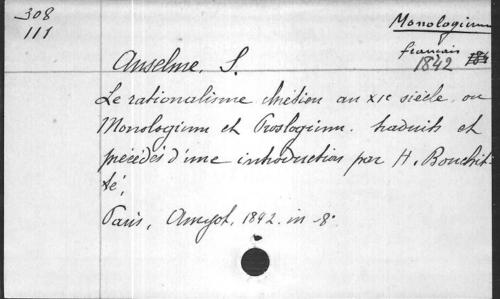 308
111
Monologium
français
1842
Anselme, S.
Le rationalisme chrétien au XIe siècle, ou
Monologium et Proslogium. traduits et
précédés d'une introduction par H. Bouchit-
té,
Paris, Amyot, 1842. in-8º.